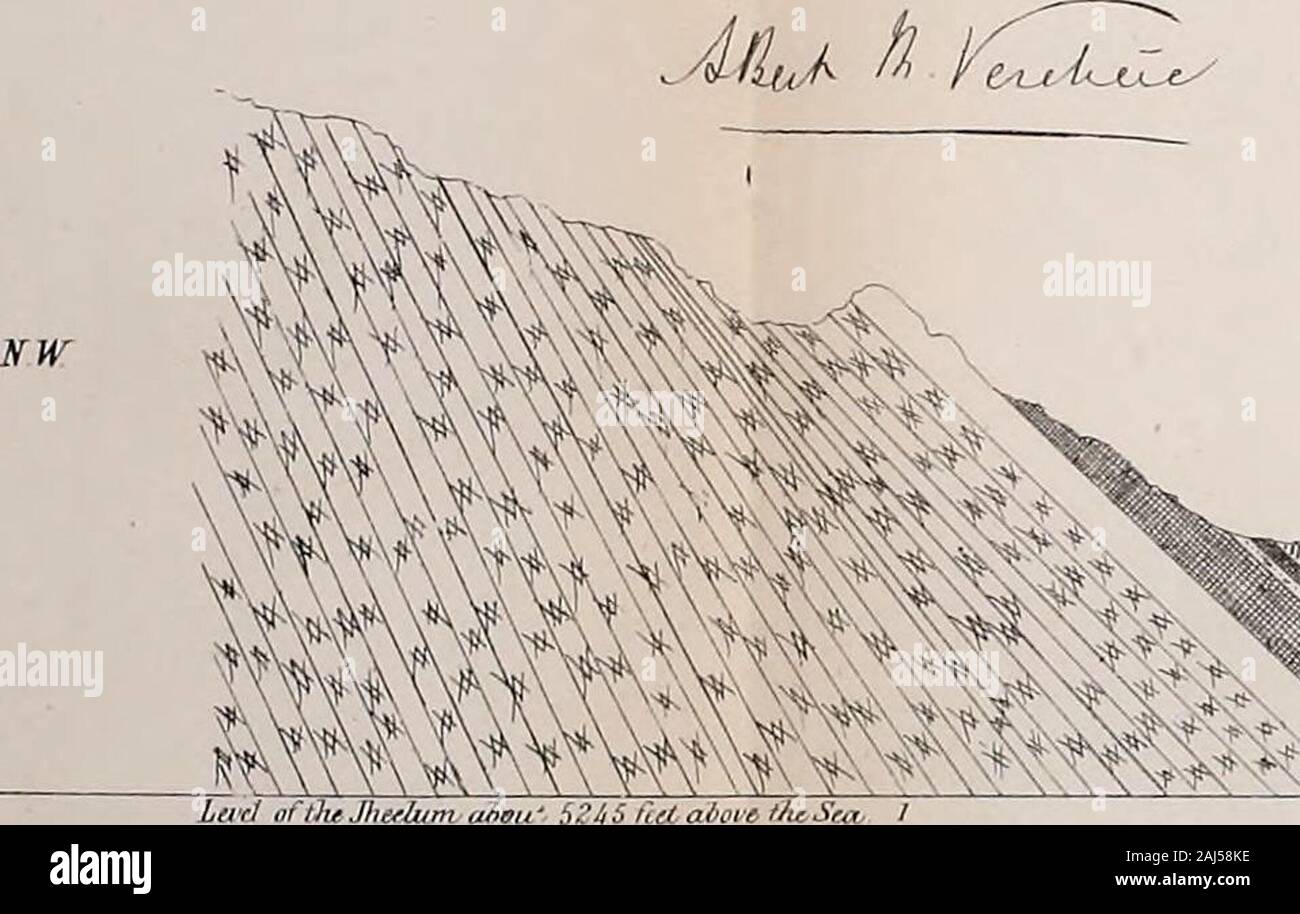 Albert M. Verchère
N.W.
Level of the Jheelum about 5245 feet above the Sea. 1
alamy
a
alamy
Image ID: 2AJ58KE
www.alamy.com